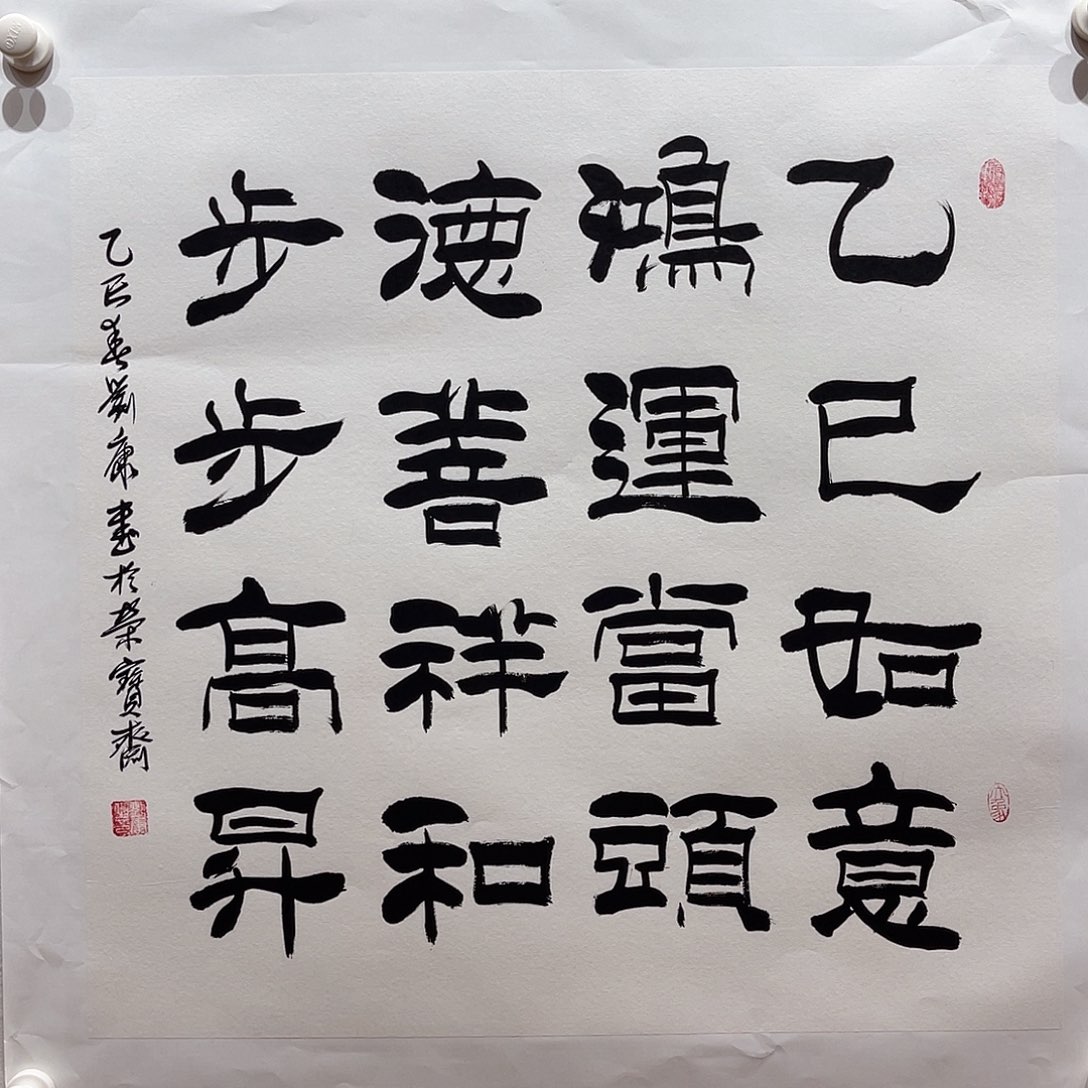 乙巳如意
鴻運當頭
德善祥和
步步高昇
乙巳春劉康書於榮寶齋